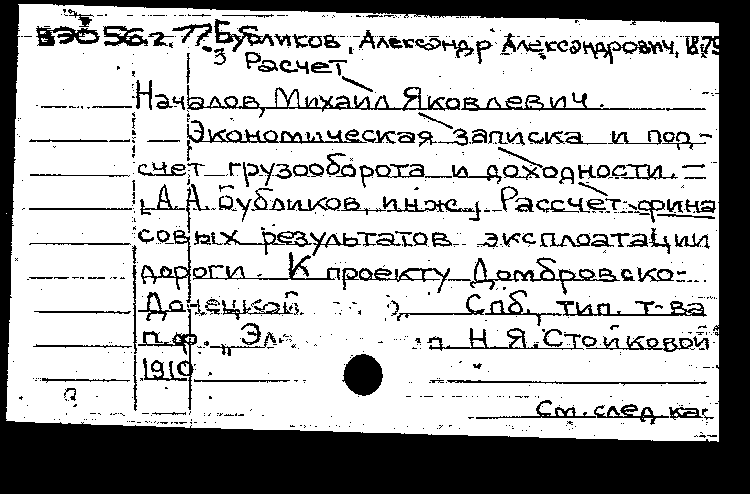 ВЭО 56.г.77 Бубликов, Александр Александрович, 1879
3 Расчет
Началов, Михаил Яковлевич.
Экономическая записка и под-
счет грузооборота и доходности. =
[А.А. Бубликов, инж.] Рассчет фина
совых результатов эксплоатации
дороги. К проекту Домбровско-
Донецкой Спб., тип. т-ва
п.ф. „Эл п. Н Я. Стойковой
1910
См. след ка